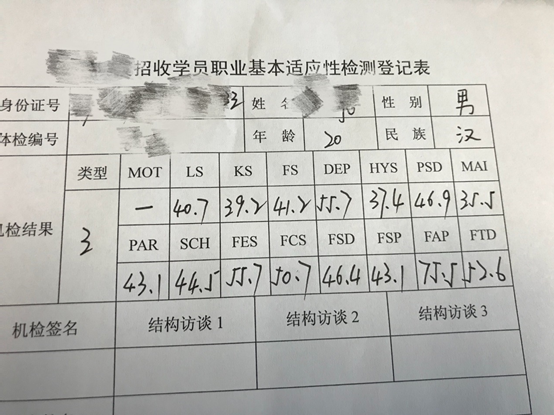 招收学员职业基本适应性检测登记表
身份证号 姓名 性别 男
体检编号 年龄 20 民族 汉
类型 MOT LS KS FS DEP HYS PSD MAI
机检结果 3 一 40.7 39.2 41.2 55.7 37.4 46.9 35.5
PAR SCH FES FCS FSD FSP FAP FTD
43.1 44.5 55.7 50.7 46.4 43.1 75.5 52.6
机检签名 结构访谈1 结构访谈2 结构访谈3